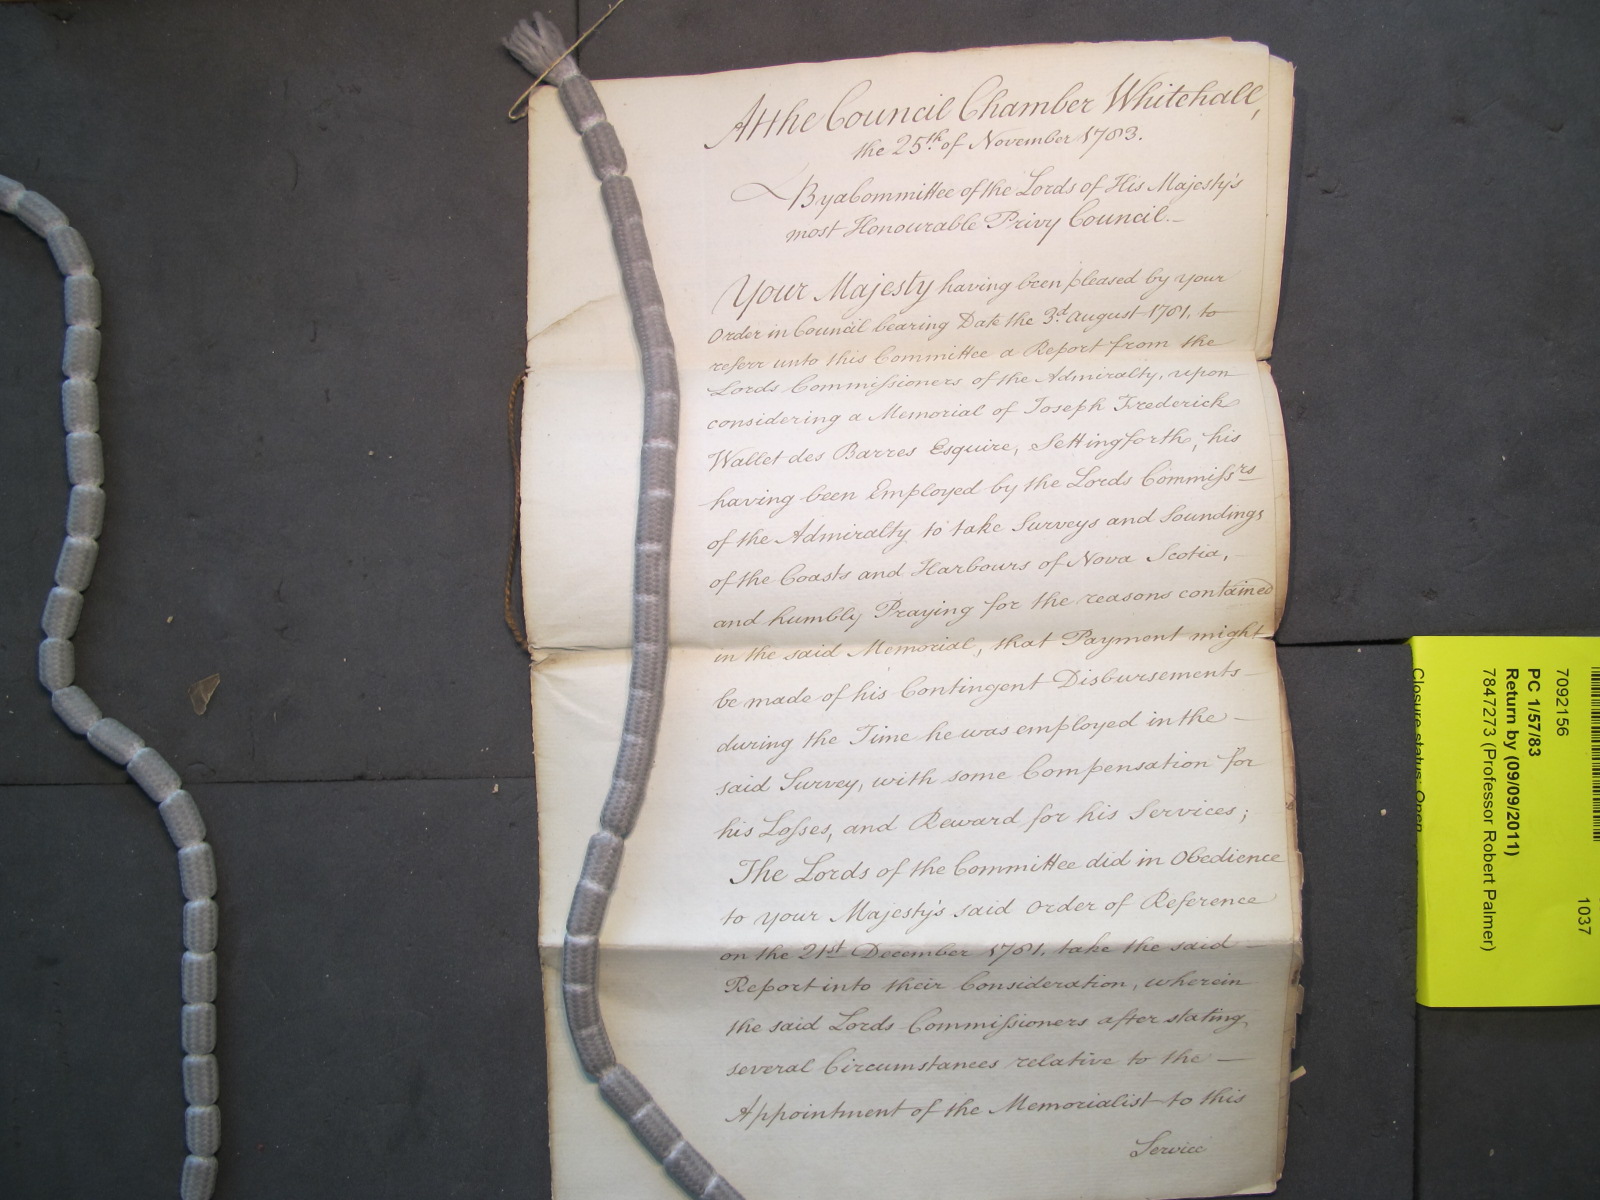 At the Council Chamber Whitehall,
the 25th. of November 1783.
By a Committee of the Lords of His Majesty's
most Honourable Privy Council.—
Your Majesty having been pleased by your
Order in Council bearing Date the 3d. August 1781, to
referr unto this Committee a Report from the
Lords Commissioners of the Admiralty, upon
considering a Memorial of Joseph Frederick
Wallet des Barres Esquire, Setting forth, his
having been Employed by the Lords Commissrs
of the Admiralty to take Surveys and Soundings
of the Coasts and Harbours of Nova Scotia, —
and humbly Praying for the reasons contained
in the said Memorial, that Payment might
be made of his Contingent Disbursements —
during the Time he was employed in the —
said Survey, with some Compensation for
his Losses, and Reward for his Services;
The Lords of the Committee did in Obedience
to your Majesty's said Order of Reference
on the 21st December 1781, take the said —
Report into their Consideration, wherein
the said Lords Commissioners after stating
several Circumstances relative to the —
Appointment of the Memorialist to this
Service
1037
7092156
PC 1/57/83
Return by (09/09/2011)
7847273 (Professor Robert Palmer)
Closure status: Open